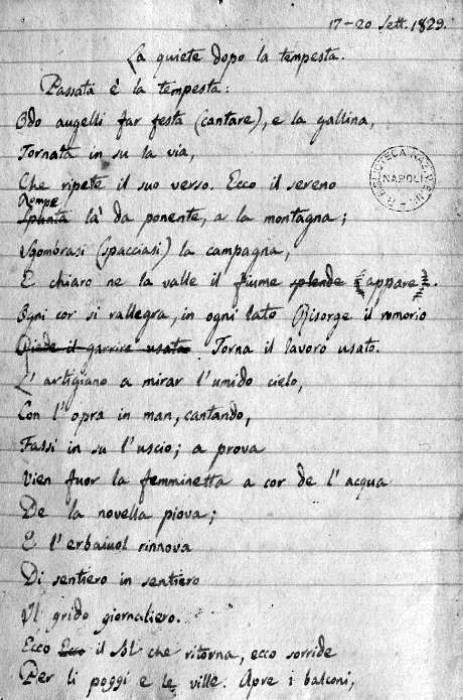 17-20 Sett. 1829.
La quiete dopo la tempesta.
Passata è la tempesta:
Odo augelli far festa (cantare), e la gallina,
Tornata in su la via,
Che ripete il suo verso. Ecco il sereno
Rompe
Spunta là da ponente, a la montagna;
Sgombrasi (spacciasi) la campagna,
E chiaro ne la valle il fiume splende (appare).
Ogni cor si rallegra, in ogni lato Risorge il romorio
Riede il garrire usato Torna il lavoro usato.
L'artigiano a mirar l'umido cielo,
Con l'opra in man, cantando,
Fassi in su l'uscio; a prova
Vien fuor la femminetta a cor de l'acqua
De la novella piova;
E l'erbaiuol rinnova
Di sentiero in sentiero
Il grido giornaliero.
Ecco Ecc il Sol che ritorna, ecco sorride
Per li poggi e le ville. Apre i balconi,
BIBLIOTECA NAZ.
NAPOLI